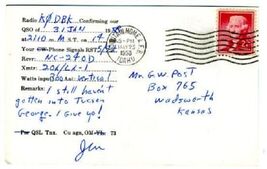 Radio KØDBK Confirming our
QSO of 31 JAN 19
at 2110 M.S.T. on 14
Your CW-Phone Signals RST 5
Recr: NC-240D
Xmtr: 20A/LA-1
Watts input 300 Ant. Vertical
Remarks:
I still haven't
gotten into Tucson
George. I give up!
Pse QSL Tnx. Cu agn, OM 73
Jim
MAY 25
5-PM
1958
IDAHO
2¢
Mr. G.W. POST
Box 765
Wadsworth
Kansas